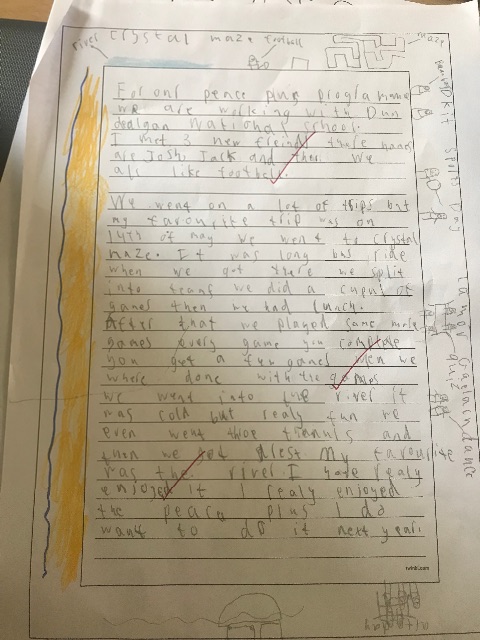 river crystal maze football
maze
For our peace plus programme
we are working with Dun
dealgan National school.
I met 3 new freinds there names
are Josh Jack and We
all like football.
We went on a lot of trips but
my favourite trip was on
14th of may we went to crystal
maze. It was long bus ride
when we got there we split
into teams we did a cupal of
games then we had lunch.
After that we played some more
games every game you complete
you get a few games when we
where done with the games
we went into the river it
was cold but realy fun we
even went and
then we got My favourite
was the river. I realy
enjoyed it I realy enjoyed
the peace plus I do
want to do it next year.
twinkl.com
sports day
quiz
dance